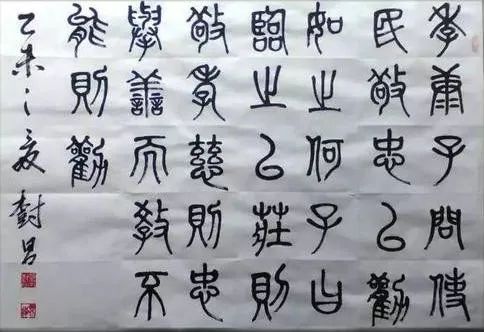 季康子問使
民敬忠以勸
如之何子曰
臨之以莊則
敬孝慈則忠
舉善而教不
能則勸
乙未之夏昌